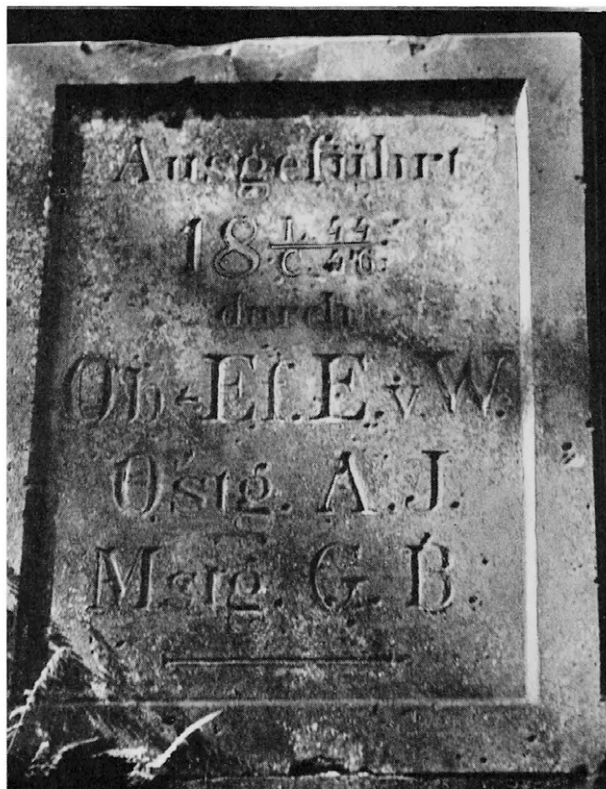 Ausgeführt
18 L. 44
C. 46.
durch
Ob-Ef. E. v. W.
Ostg. A. J.
Mstg. G. B.